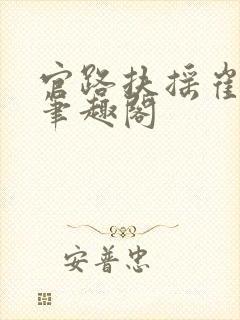 官路扶摇崔
笔趣阁
安普忠